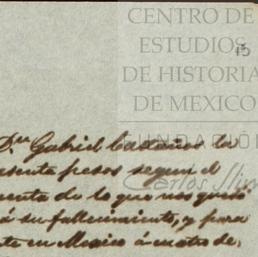 CENTRO DE
ESTUDIOS
DE HISTORIA
DE MEXICO
FUNDACIÓN
Carlos Slim
15
Dn Gabriel
pesos segun el
de lo que nos quedó
á su fallecimiento, y para
en Mexico á cuatro de